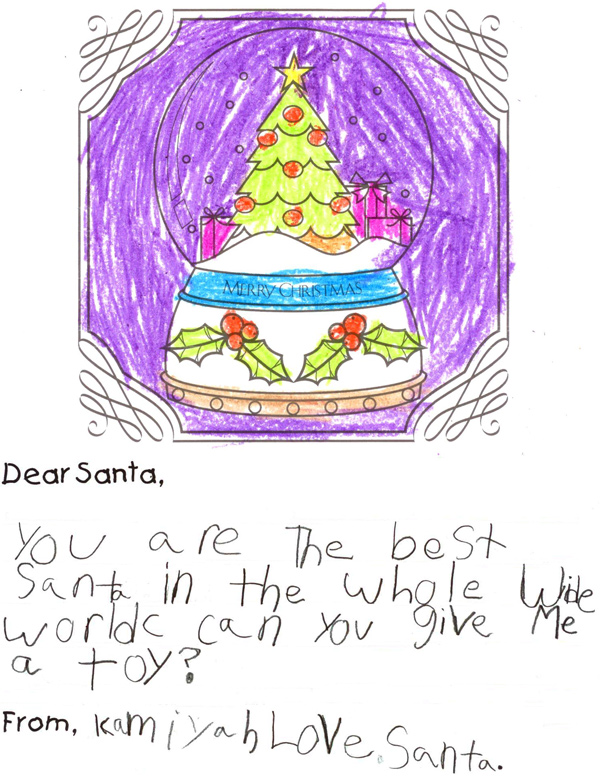 MERRY CHRISTMAS
Dear Santa,
you are The best
Santa in the whole Wide
worldc can you give Me
a toy?
From, kamiyah LOVe. Santa.